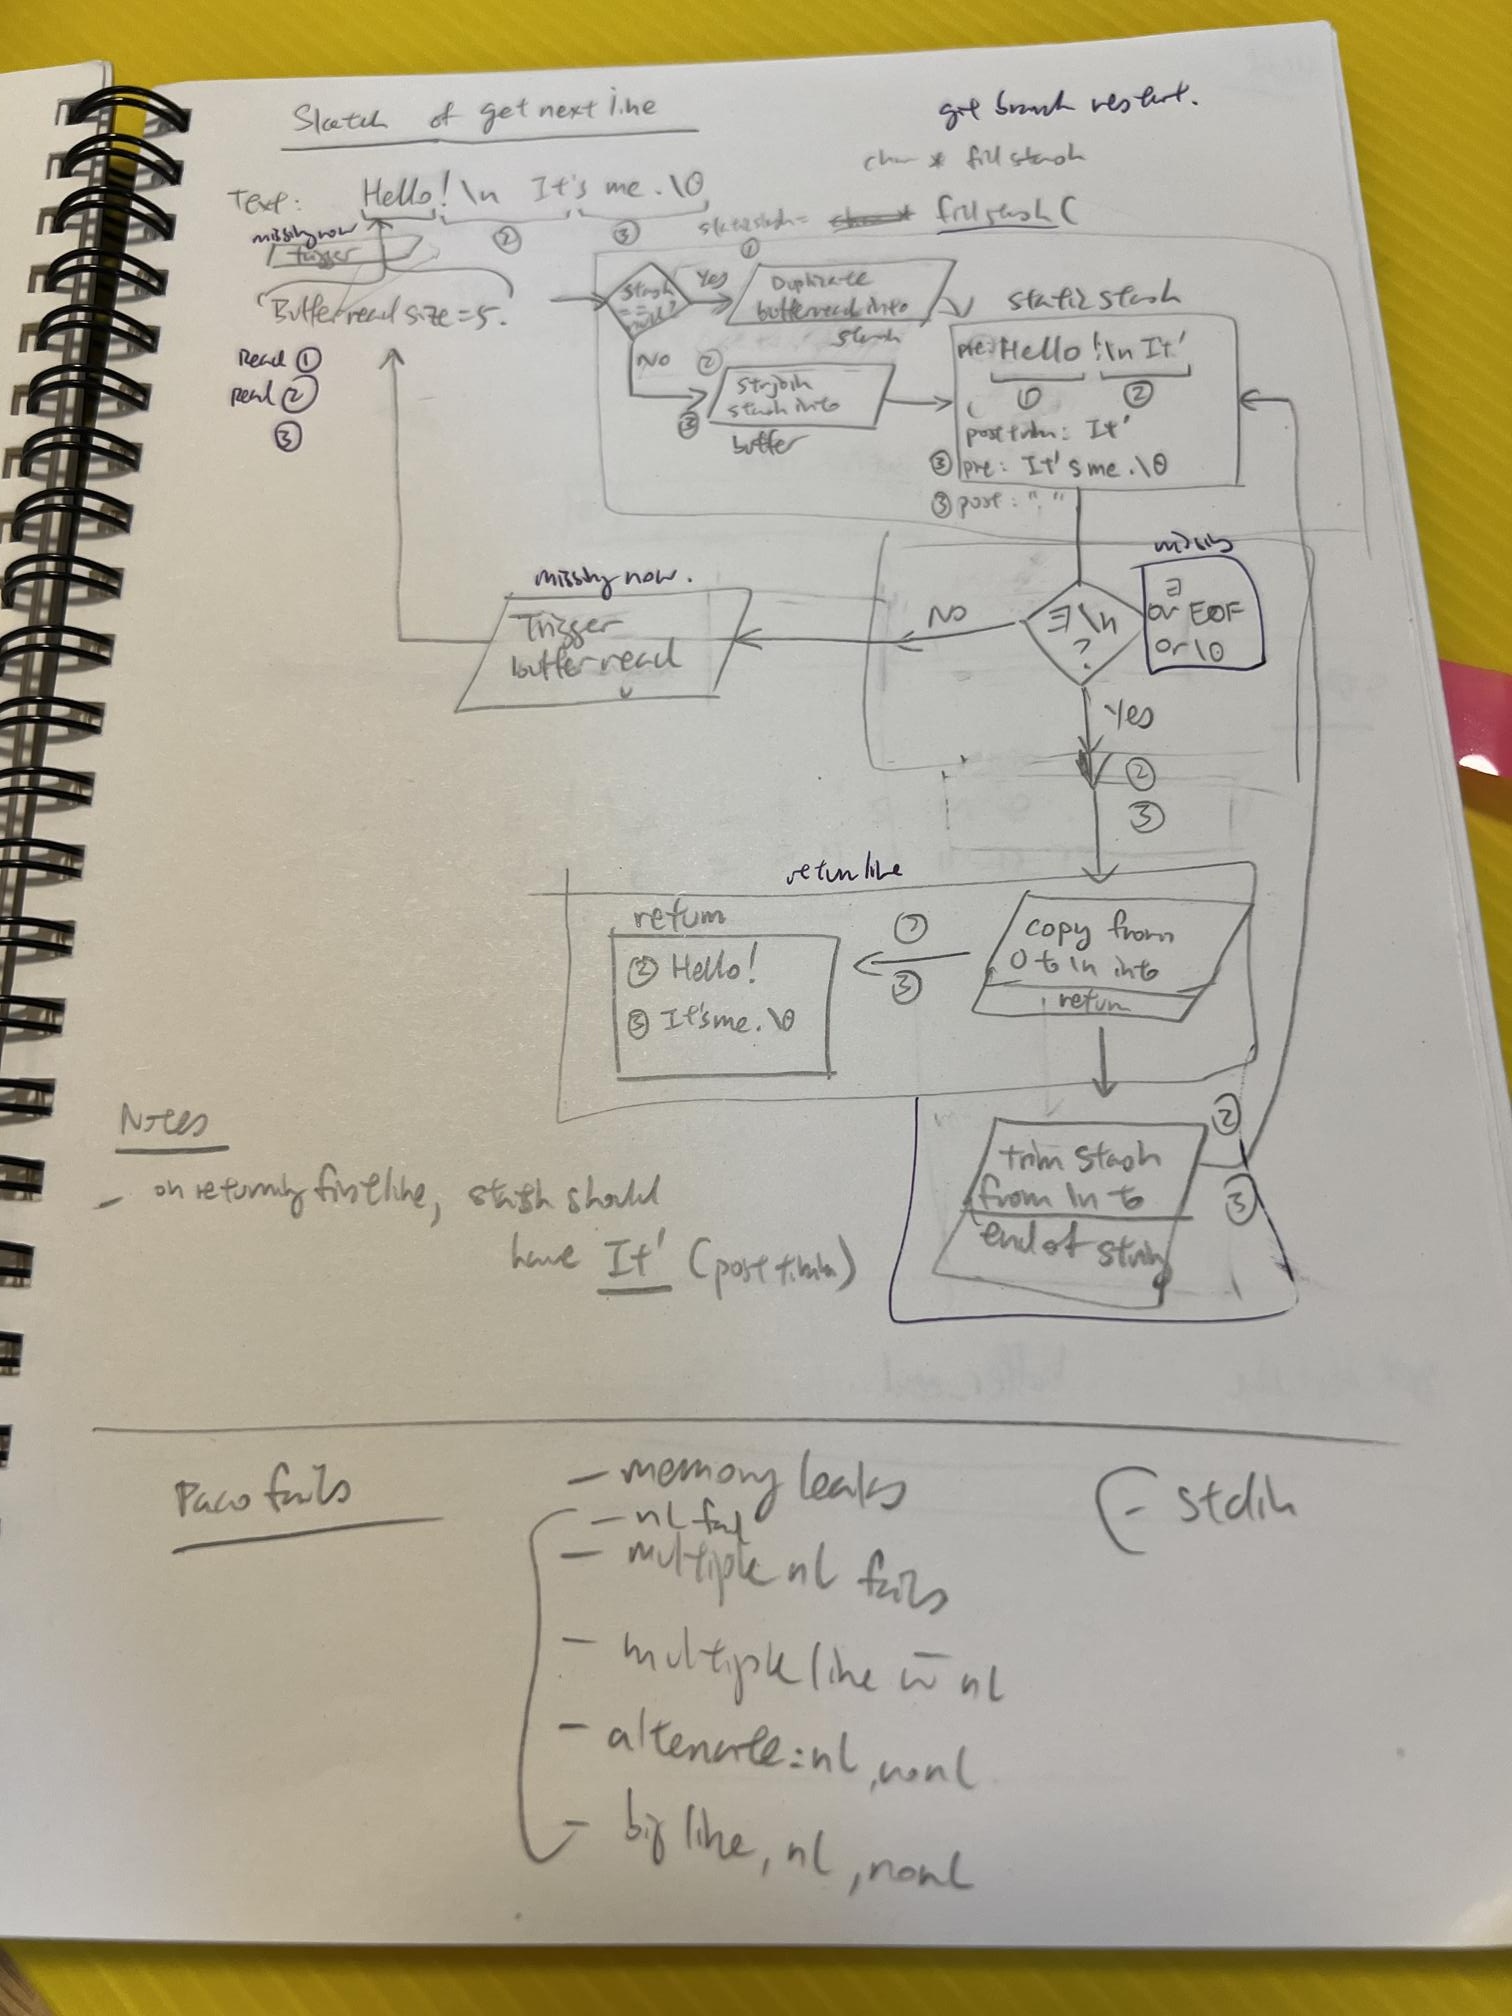 Sketch of get next line
git branch restart.
char * fill stash
Text: Hello! \n It's me. \0
② ③
static stash = fill stash (
missing now
trigger
Buffer read size = 5.
Read ①
read ②
③
stash
==
null?
Yes
①
Duplicate
buffer read into
stash
NO
②
③
strjoin
stash into
buffer
static stash
pre: Hello !\n It'
① ②
post trim: It'
③ pre: It's me. \0
③ post: " "
missing now.
Trigger
buffer read
NO
∃ \n
?
missing
∃
or EOF
or \0
Yes
②
③
return line
return
② Hello!
③ It's me. \0
②
③
copy from
0 to \n into
return
trim stash
from \n to
end of string
②
③
Notes
- on returning first line, stash should
have It' (post trim)
Paco fails
- memory leaks
- nl fail
- multiple nl fails
- multiple line w̄ nl
- alternate: nl, nonl
- big line, nl, nonl
- stdin